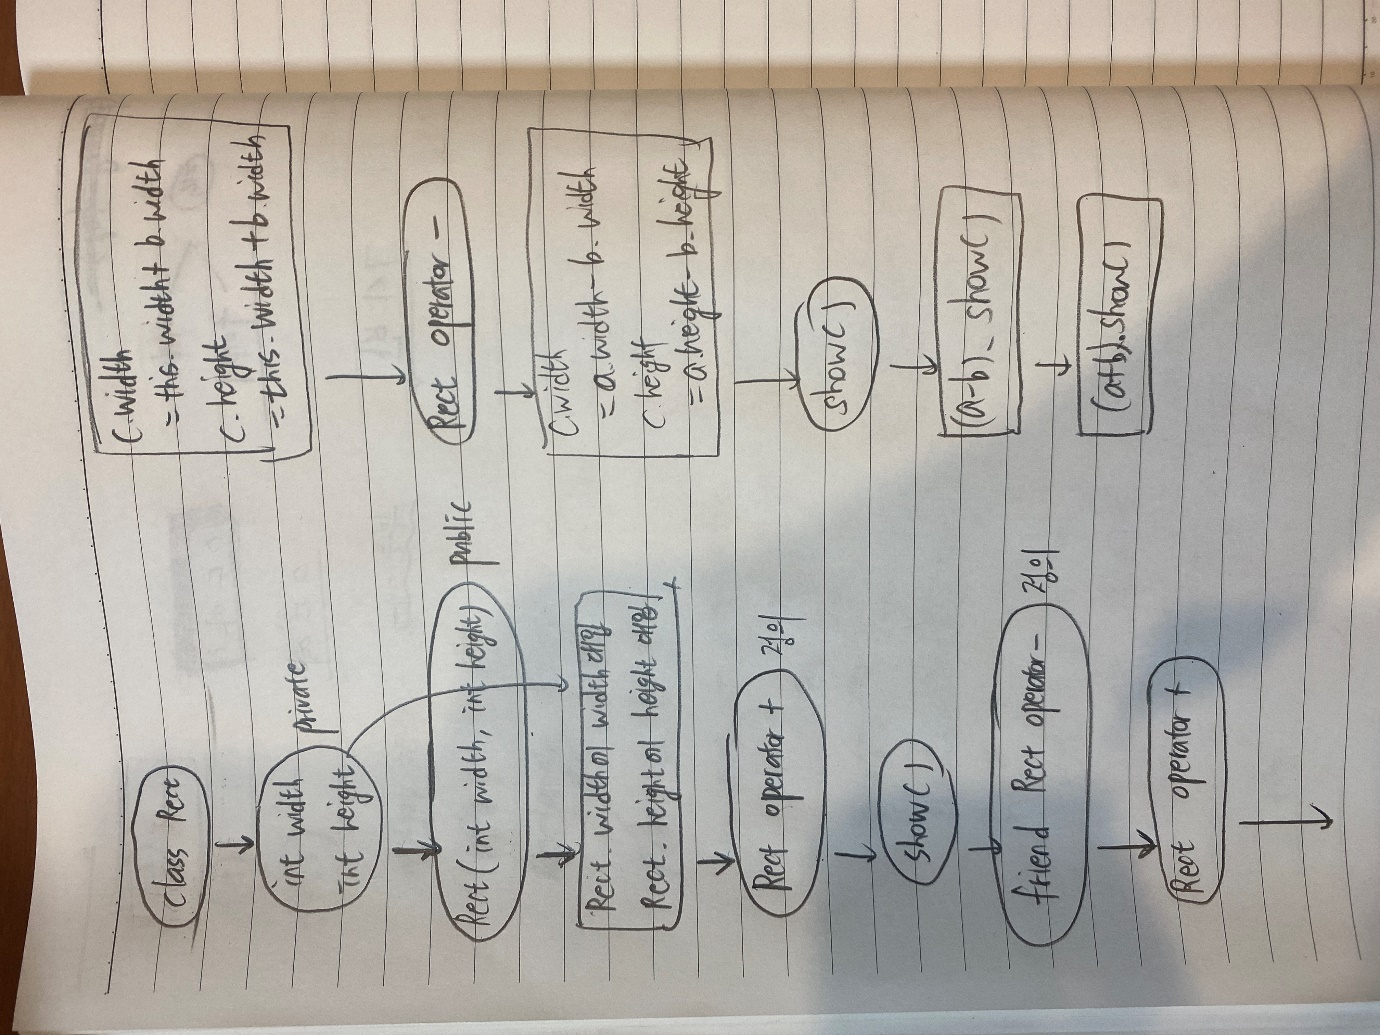 Class Rect
int width
int height
private
Rect(int width, int height)
public
Rect.width에 width대입
Rect.height에 height 대입
Rect operator +
정의
show()
friend Rect operator-
정의
Rect operator +
C.width
=this.width+b.width
C.height
=this.width+b.width
Rect operator -
C.width
=a.width-b.width
C.height
=a.height-b.height
show()
(a-b).show()
(a+b).show()